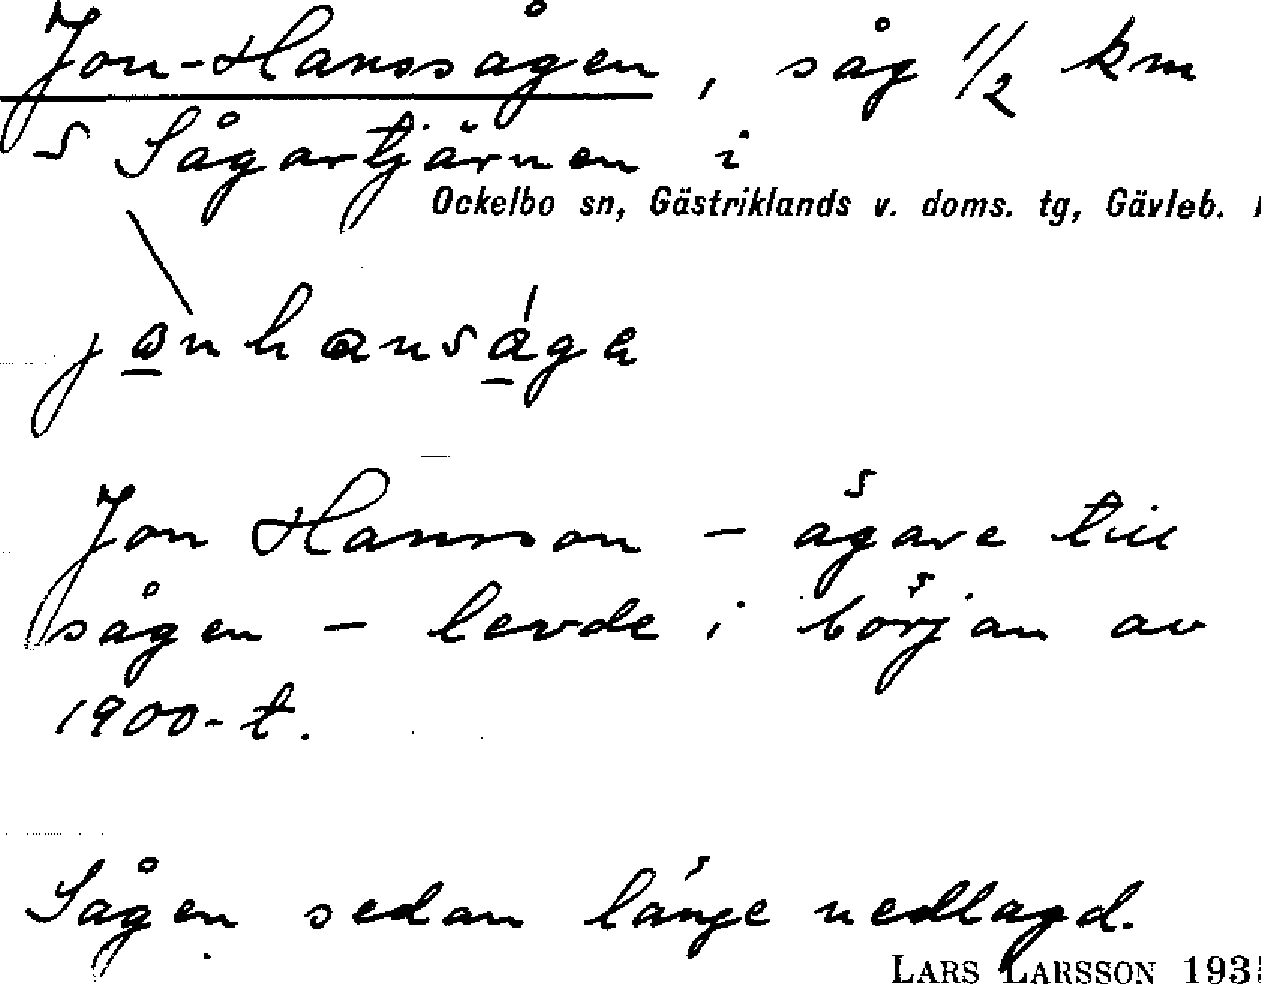 Jon-Hanssågen, såg 1/2 km
S Sågartjärnen i
Ockelbo sn, Gästriklands v. doms. tg, Gävleb.
Jon Hansson - ägare till
sågen - levde i början av
1900-t.
Sågen sedan länge nedlagd.
LARS LARSSON 193